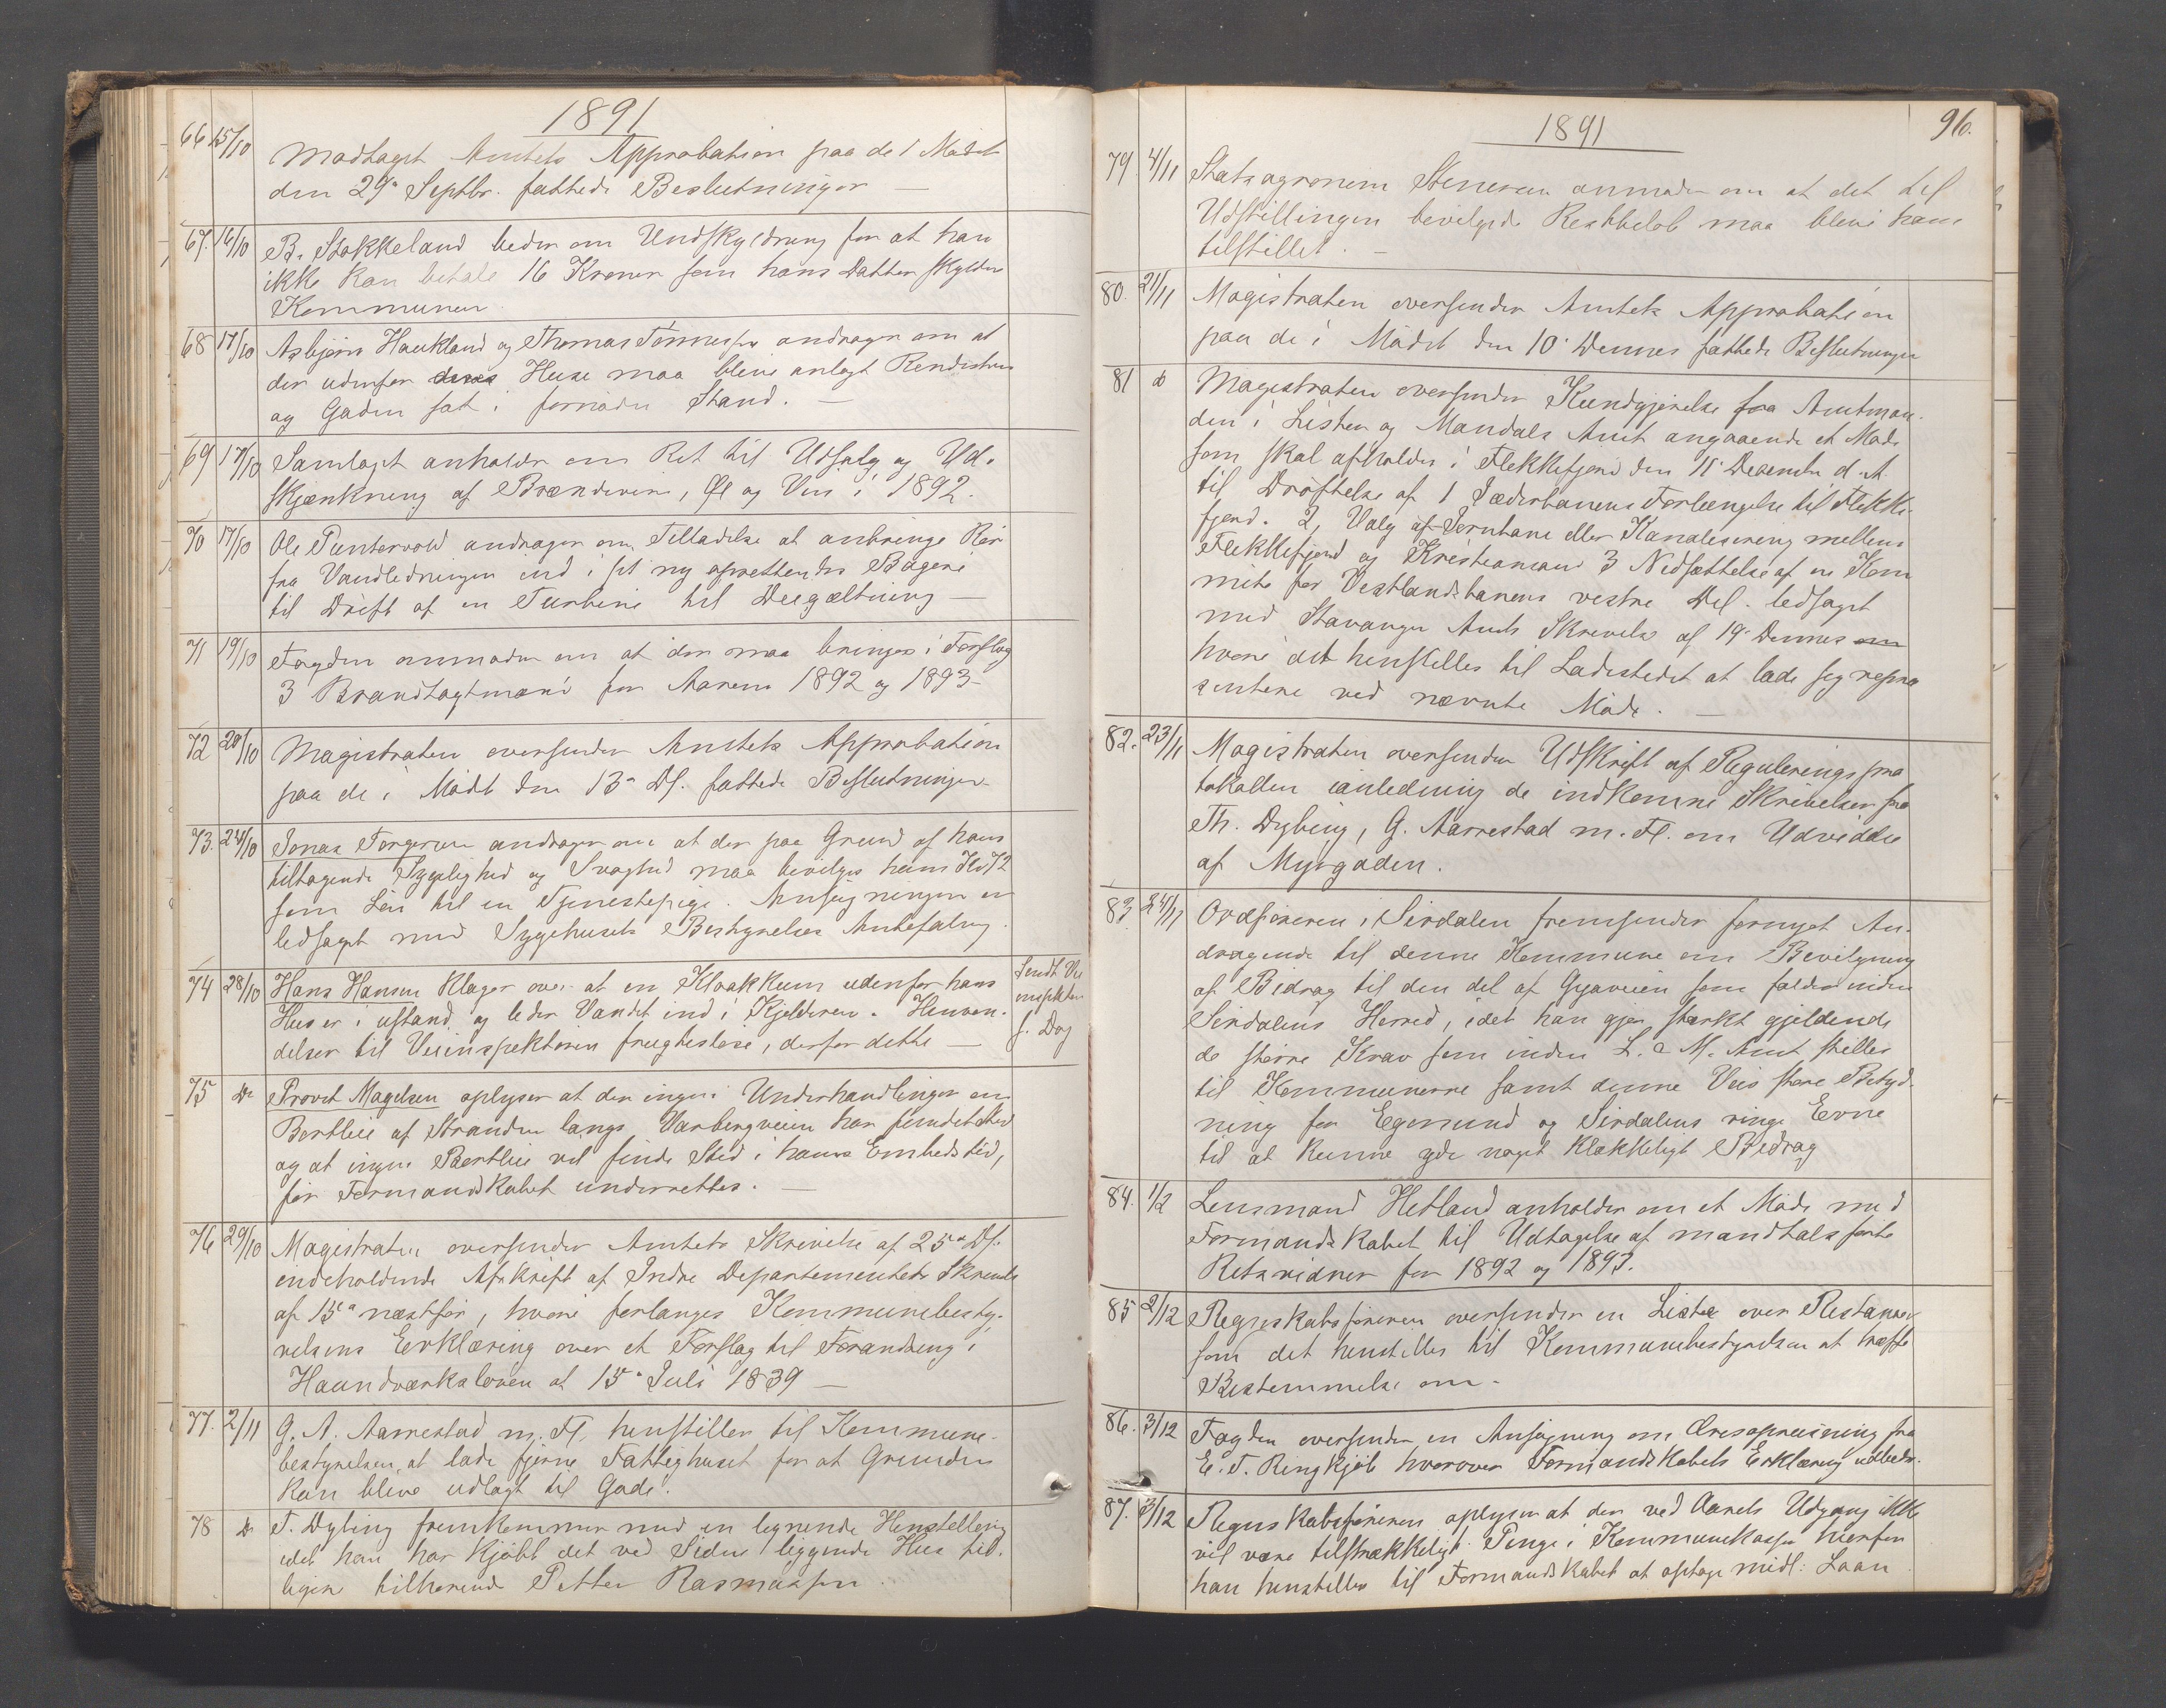 1891
66 15/10 Modtaget Amtets Approbation paa de i Mødet
den 29de Septbr. fattede Beslutninger —
67. 16/10 B. Stokkeland beder om Undskyldning for at han
ikke kan betale 16 Kroner som hans Datter skylder
Kommunen
68 17/10 Asbjørn Haukland og Thomas Tønnessen andrager om at
der udenfor deres Huse maa blive anlagt Rendesten
og Gaden sat i fornøden Stand. —
69 17/10 Samlaget anholder om Ret til Udsalg og Ud-
skjænkning af Brændevin, Øl og Vin i 1892.
70 17/10 Ole Puntervold andrager om Tilladelse at anbringe Rør
fra Vandledningen ind i sit ny oprettendes Bageri
til Drift af en Turbine til Deigæltning —
71 19/10 Fogden anmoder om at der maa bringes i Forslag
3 Brandtagtmænd for Aarene 1892 og 1893 —
72 20/10 Magistraten oversender Amtets Approbation
paa de i Mødet den 13de Ds. fattede Beslutninger
73. 24/10 Jonas Torgersen andrager om at der paa Grund af hans
tiltagende Sygelighed og Svaghed maa bevilges ham Kr 72
som Løn til en Tjenestepige. Ansøgningen er
ledsaget med Sygehusets Bestyrelses Anbefaling.
74 28/10 Hans Hansen klager over at en Kloakkum udenfor hans
Hus er i ustand og leder Vandet ind i Kjelderen. Henven-
delser til Veiinspektøren frugtesløse, derfor dette —
Sendt Vei
inspektør
s. Dag
75 Do Provst Magelsen oplyser at der ingen Underhandlinger om
Bortleie af Stranden langs Varbergveien har fundet Sted
og at ingen Bortleie vil finde Sted i hans Embedstid,
før Formandskabet underrettes. —
76 29/10 Magistraten oversender Amtets Skrivelse af 25de Ds.
indeholdende Afskrift af Indre Departementets Skrivelse
af 15de næstfør, hvori forlanges Kommunebesty-
relsens Erklæring over et Forslag til Forandring i
Haandværksloven af 15de Juli 1839 —
77. 2/11 G. A. Aarrestad m. Fl. henstiller til Kommune-
bestyrelsen at lade fjerne Fattighuset for at Grunden
kan blive udlagt til Gade.
78 Do T. Dybing fremkommer med en lignende Henstilling
idet han har kjøbt det ved Siden liggende Hus tid-
ligere tilhørende Petter Rasmussen.
1891
96.
79. 4/11 Statsagronom Stenersen anmoder om at det til
Udstillingen bevilgede Restbeløb maa blive ham
tilstillet. —
80. 21/11 Magistraten oversender Amtets Approbation
paa de i Mødet den 10de Dennes fattede Beslutninger
81 do Magistraten oversender Kundgjørelse fra Amtman-
den i Lister og Mandals Amt angaaende et Møde
som skal afholdes i Flekkefjord den 11te December d. A.
til Drøftelse af 1 Jæderbanens Forlængelse til Flekke-
fjord. 2, Valg af Jernbane eller Kanalisering mellem
Flekkefjord og Kristiansand 3 Nedsættelse af en Kom
mite for Vestlandsbanens vestre Del. ledsaget
med Stavanger Amts Skrivelse af 19de Dennes om
hvori det henstilles til Ladestedet at lade seg repræ
sentere ved nævnte Møde. —
82. 23/11 Magistraten oversender Udskrift af Reguleringspro
tokollen ianledning de indkomne Skrivelser fra
Th. Dybing, G. Aarrestad m. Fl. om Udvidelse
af Myrgaden.
83 24/11 Ordføreren i Sirdalen fremsender fornyet An-
dragende til denne Kommune om Bevilgning
af Bidrag til den del af Gyaveien som falder inden
Sirdalens Herred, idet han gjør stærkt gjeldende
de større Krav som inden L. & M. Amt stilles
til Kommunerne samt denne Veis store Betyd-
ning for Egersund og Sirdalens ringe Evne
til at kunne yde noget klækkeligt Bidrag
84. 1/2 Lensmand Hetland anholder om et Møde med
Formandskabet til Udtagelse af mandtalsførte
Retsvidner for 1892 og 1893.
85 2/12 Regnskabsføreren oversender en Liste over Restancer
som det henstilles til Kommunebestyrelsen at træffe
Bestemmelse om.
86. 3/12 Fogden oversender en Ansøgning om Oreisopreisning fra
E. T. Ringkjøb hvorover Formandskabets Erklæring udbedes.
87. 3/12 Regnskabsføreren oplyser at der ved Aarets Udgang ikke
vil være tilstrækkeligt Penge i Kommunekassen hvorfor
han henstiller til Formandskabet at optage midl: Laan.